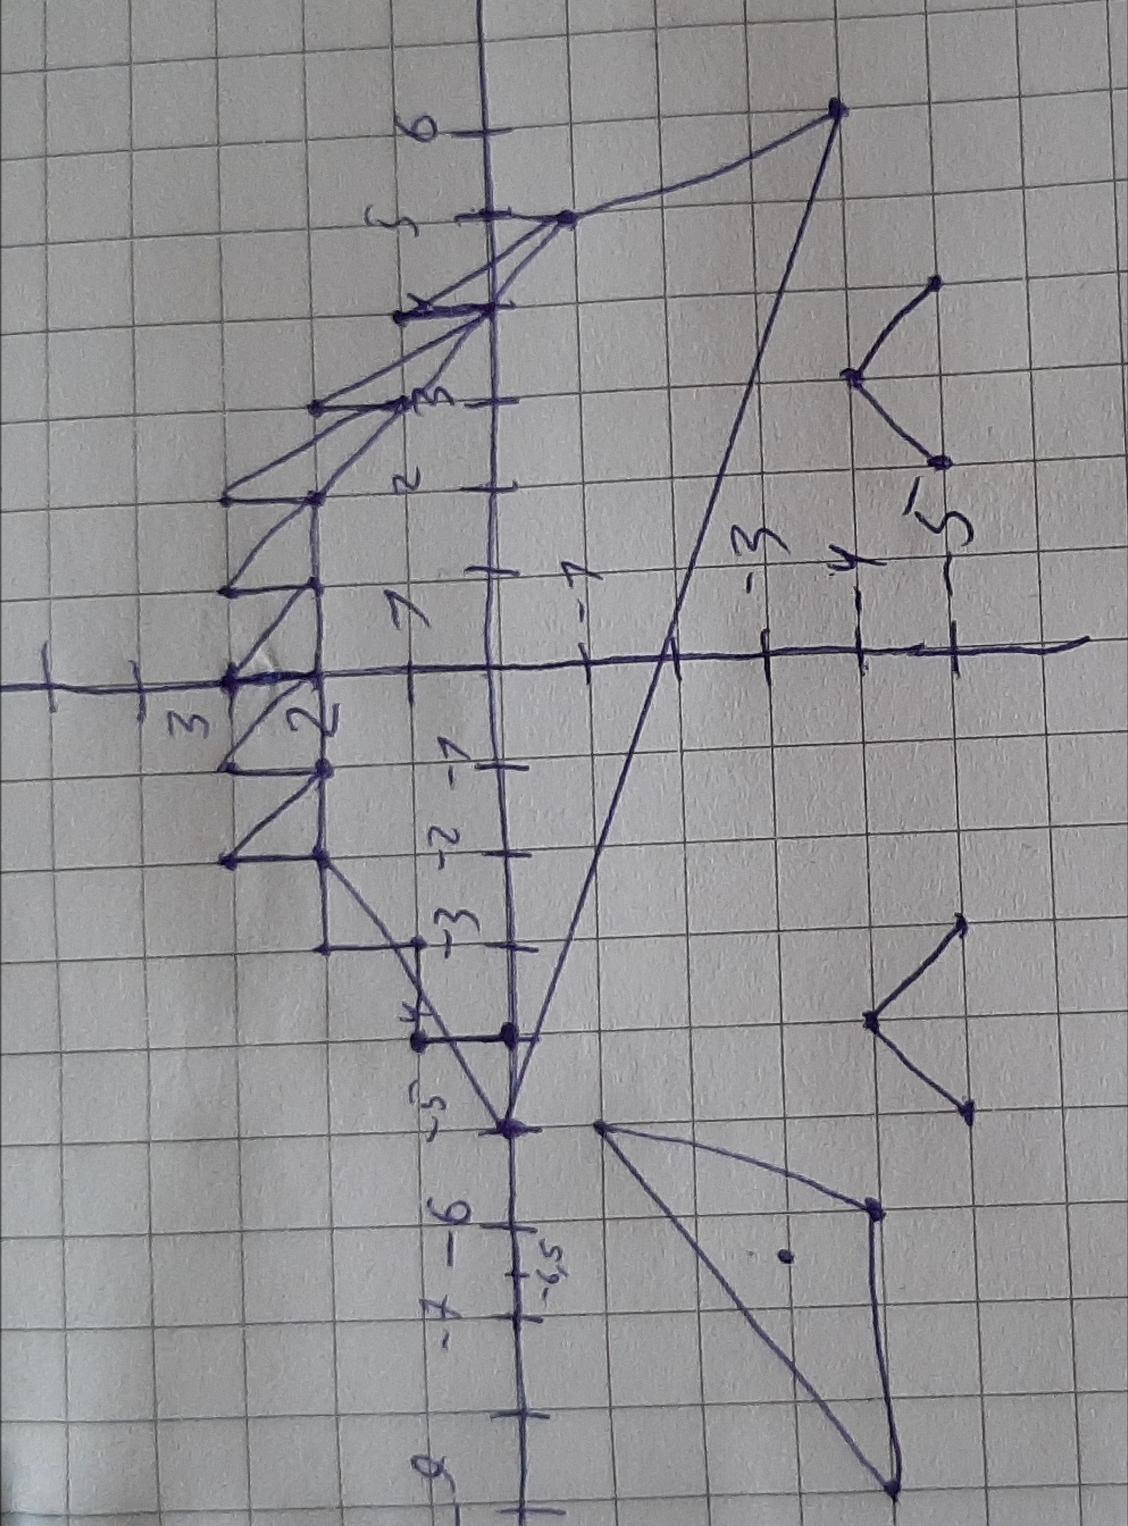 6
5
4
3
2
1
-1
-2
-3
-4
-5
-6
-6,5
-7
-9
3
2
-1
-3
-4
-5